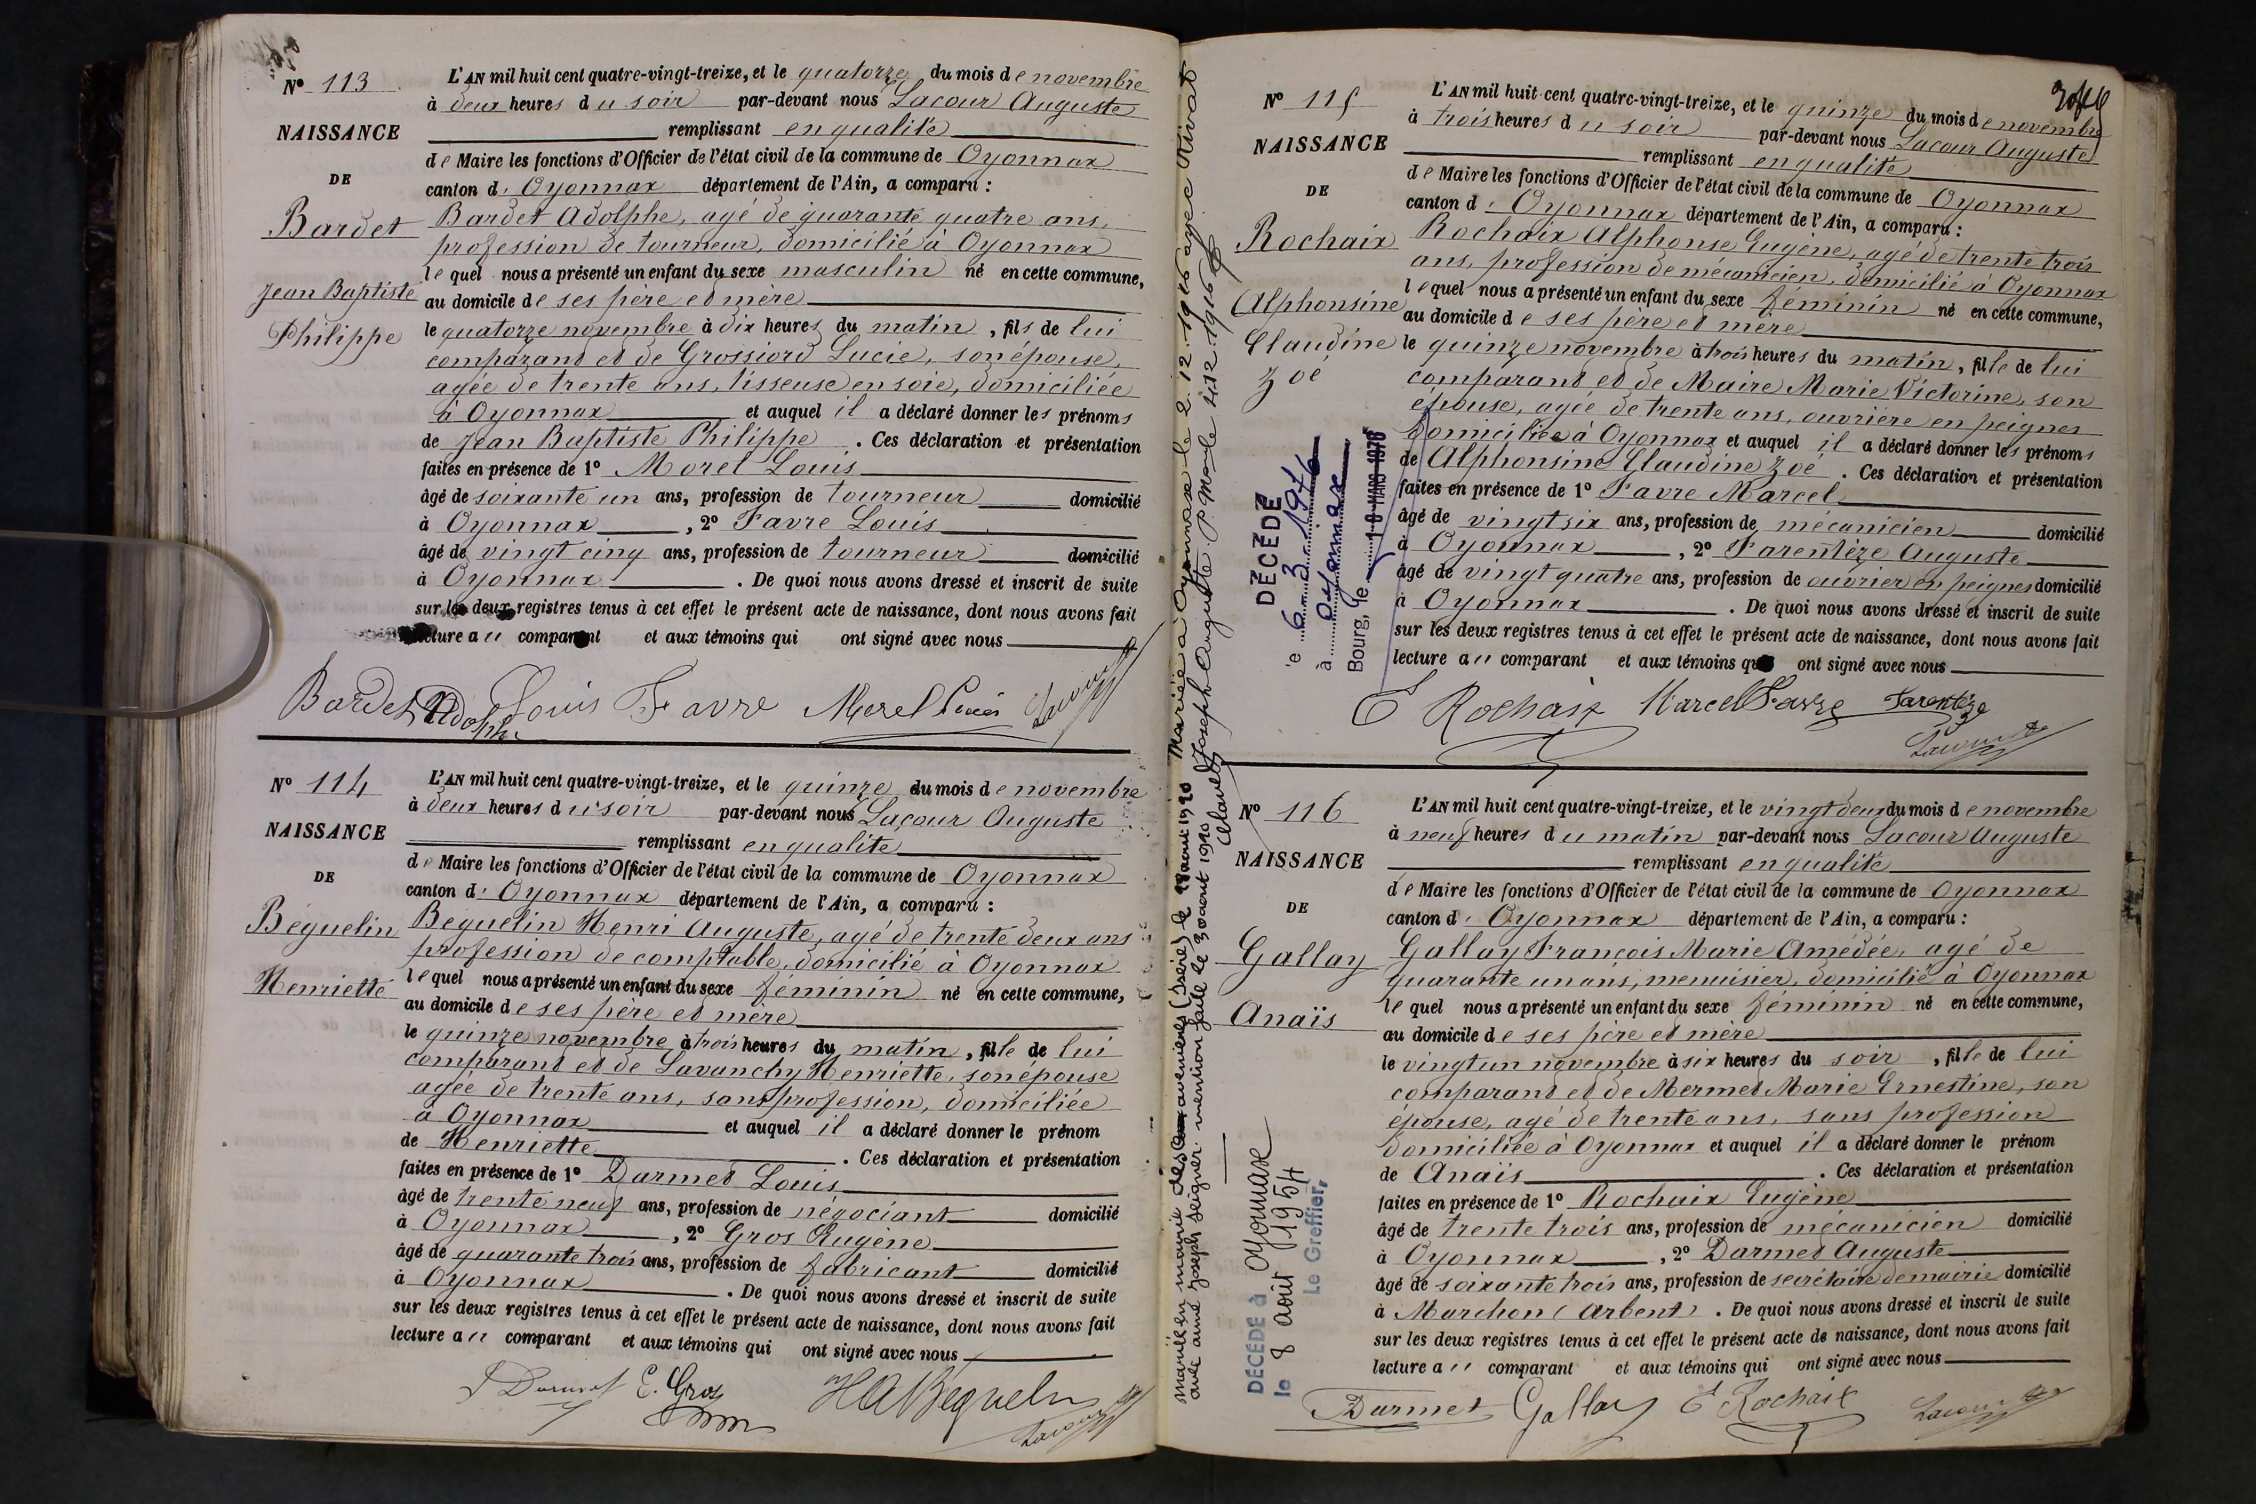 Nº 113
NAISSANCE
DE
Bardet
Jean Baptiste
Philippe
L'AN mil huit cent quatre-vingt-treize, et le quatorze du mois de novembre
à deux heures du soir par-devant nous Lacour Auguste
remplissant en qualité
de Maire les fonctions d'Officier de l'état civil de la commune de Oyonnax
canton d'Oyonnax département de l'Ain, a comparu :
Bardet Adolphe, agé de quarante quatre ans,
profession de tourneur, domicilié à Oyonnax
lequel nous a présenté un enfant du sexe masculin né en cette commune,
au domicile de ses père et mère
le quatorze novembre à dix heures du matin, fils de lui
comparant et de Grossiord Lucie, son épouse,
agée de trente ans, tisseuse en soie, domiciliée
à Oyonnax et auquel il a déclaré donner les prénoms
de Jean Baptiste Philippe. Ces déclaration et présentation
faites en présence de 1º Morel Louis
âgé de soixante un ans, profession de tourneur domicilié
à Oyonnax, 2º Favre Louis
âgé de vingt cinq ans, profession de tourneur domicilié
à Oyonnax. De quoi nous avons dressé et inscrit de suite
sur les deux registres tenus à cet effet le présent acte de naissance, dont nous avons fait
lecture au comparant et aux témoins qui ont signé avec nous
Bardet Adolphe Louis Favre Morel Louis Lacour
Nº 114
NAISSANCE
DE
Béguelin
Henriette
L'AN mil huit cent quatre-vingt-treize, et le quinze du mois de novembre
à deux heures du soir par-devant nous Lacour Auguste
remplissant en qualité
de Maire les fonctions d'Officier de l'état civil de la commune de Oyonnax
canton d'Oyonnax département de l'Ain, a comparu :
Beguelin Henri Auguste, agé de trente deux ans
profession de comptable, domicilié à Oyonnax
lequel nous a présenté un enfant du sexe féminin né en cette commune,
au domicile de ses père et mère
le quinze novembre à trois heures du matin, fille de lui
comparant et de Lavanchy Henriette, son épouse
agée de trente ans, sans profession, domiciliée
à Oyonnax et auquel il a déclaré donner le prénom
de Henriette. Ces déclaration et présentation
faites en présence de 1º Darmet Louis
âgé de trente neuf ans, profession de négociant domicilié
à Oyonnax, 2º Gros Eugène
âgé de quarante trois ans, profession de fabricant domicilié
à Oyonnax. De quoi nous avons dressé et inscrit de suite
sur les deux registres tenus à cet effet le présent acte de naissance, dont nous avons fait
lecture au comparant et aux témoins qui ont signé avec nous
L Darmet E. Gros HA Béguelin Lacour
Mariée à Oyonnax le 2.12.1916 avec Rivat
Joseph Auguste P. Mle le 4.12.1916
le 28 août 1920
mention faite le 30 août 1920
Nº 115
NAISSANCE
DE
Rochaix
Alphonsine
Claudine
Zoé
DÉCÉDÉ
le 6-3-1946
à Oyonnax
Bourg, le 18 MARS 1976
L'AN mil huit cent quatre-vingt-treize, et le quinze du mois de novembre
à trois heures du soir par-devant nous Lacour Auguste
remplissant en qualité
de Maire les fonctions d'Officier de l'état civil de la commune de Oyonnax
canton d'Oyonnax département de l'Ain, a comparu :
Rochaix Alphonse Eugène, agé de trente trois
ans, profession de mécanicien, domicilié à Oyonnax
lequel nous a présenté un enfant du sexe féminin né en cette commune,
au domicile de ses père et mère
le quinze novembre à trois heures du matin, fille de lui
comparant et de Maire Marie Victorine, son
épouse, agée de trente ans, ouvrière en peignes
domiciliée à Oyonnax et auquel il a déclaré donner les prénoms
de Alphonsine Claudine Zoé. Ces déclaration et présentation
faites en présence de 1º Favre Marcel
âgé de vingt six ans, profession de mécanicien domicilié
à Oyonnax, 2º Tarentèze Auguste
âgé de vingt quatre ans, profession de ouvrier en peignes domicilié
à Oyonnax. De quoi nous avons dressé et inscrit de suite
sur les deux registres tenus à cet effet le présent acte de naissance, dont nous avons fait
lecture au comparant et aux témoins qui ont signé avec nous
E Rochaix Marcel Favre Tarentèze
Lacour
Nº 116
NAISSANCE
DE
Gallay
Anaïs
DÉCÉDÉ à Oyonnax
le 8 août 1954
Le Greffier,
L'AN mil huit cent quatre-vingt-treize, et le vingt deux du mois de novembre
à neuf heures du matin par-devant nous Lacour Auguste
remplissant en qualité
de Maire les fonctions d'Officier de l'état civil de la commune de Oyonnax
canton d'Oyonnax département de l'Ain, a comparu :
Gallay François Marie Amédée, agé de
quarante un ans, menuisier, domicilié à Oyonnax
lequel nous a présenté un enfant du sexe féminin né en cette commune,
au domicile de ses père et mère
le vingt un novembre à six heures du soir, fille de lui
comparant et de Mermet Marie Ernestine, son
épouse, agé de trente ans, sans profession
domiciliée à Oyonnax et auquel il a déclaré donner le prénom
de Anaïs. Ces déclaration et présentation
faites en présence de 1º Rochaix Eugène
âgé de trente trois ans, profession de mécanicien domicilié
à Oyonnax, 2º Darmet Auguste
âgé de soixante trois ans, profession de secrétaire de mairie domicilié
à Marchon (Arbent). De quoi nous avons dressé et inscrit de suite
sur les deux registres tenus à cet effet le présent acte de naissance, dont nous avons fait
lecture au comparant et aux témoins qui ont signé avec nous
Darmet Gallay E Rochaix Lacour